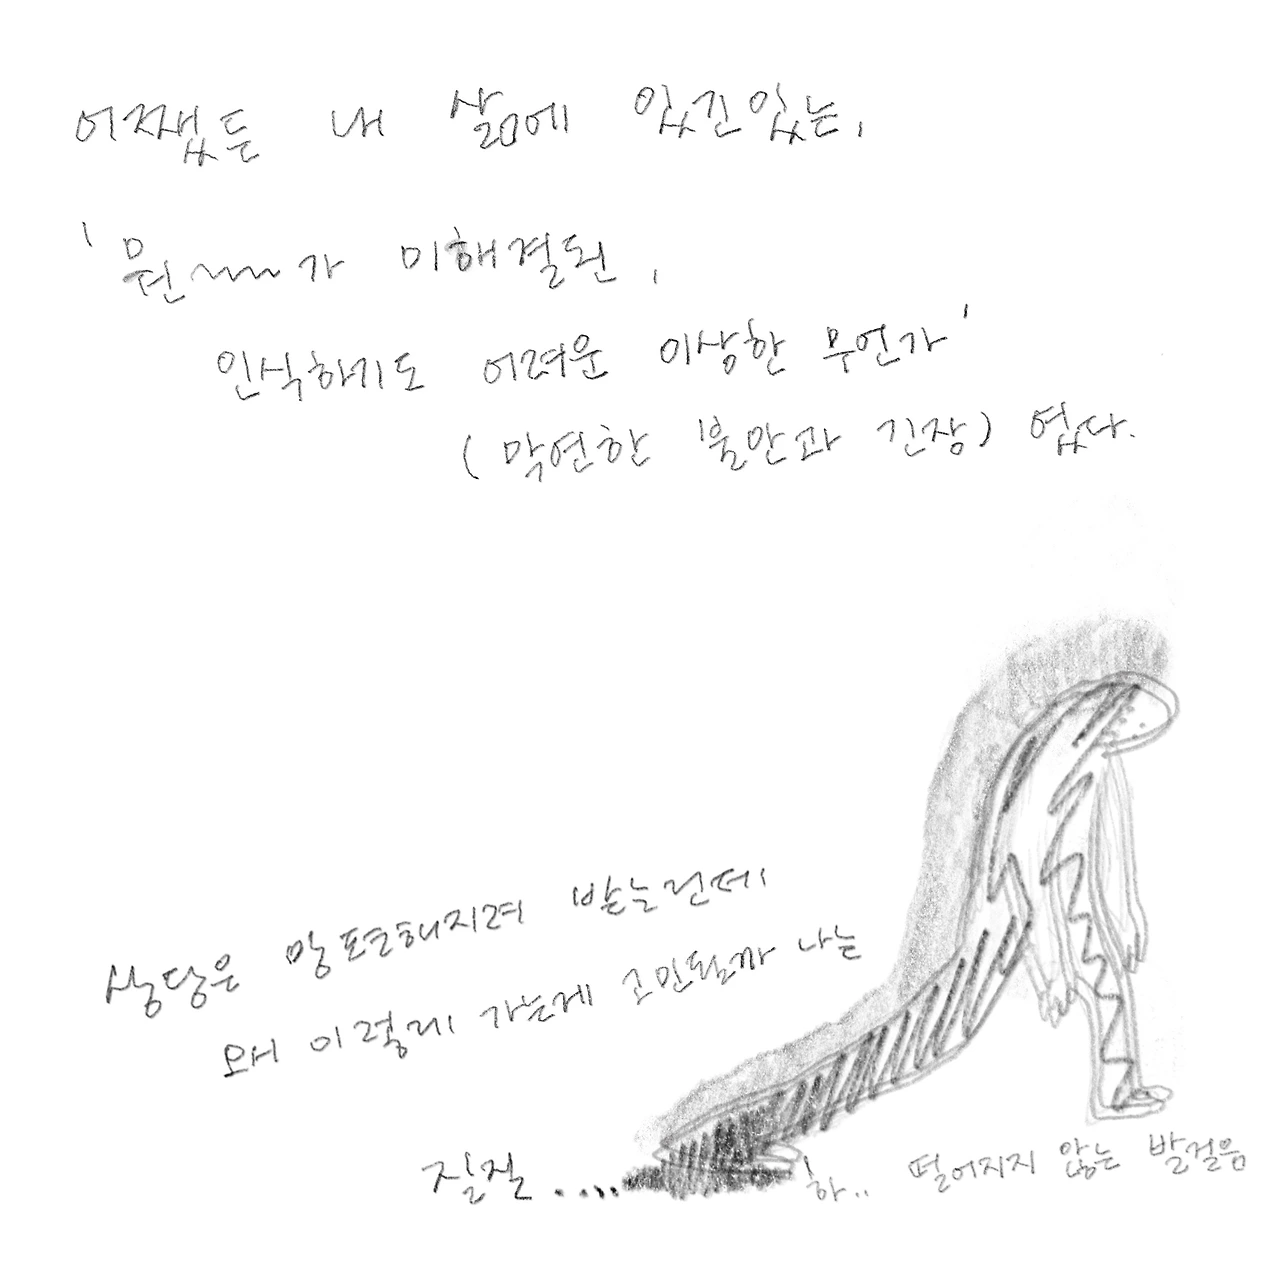 어쨌든 내 삶에 있긴있는,
'뭔~~~가 미해결된,
인식하기도 어려운 이상한 무언가'
(막연한 불안과 긴장) 였다.
상당은 맘 편해지려 받는런데
왜 이렇게 가는게 고민될까 나는
질질....
하.. 떨어지지 않는 발걸음